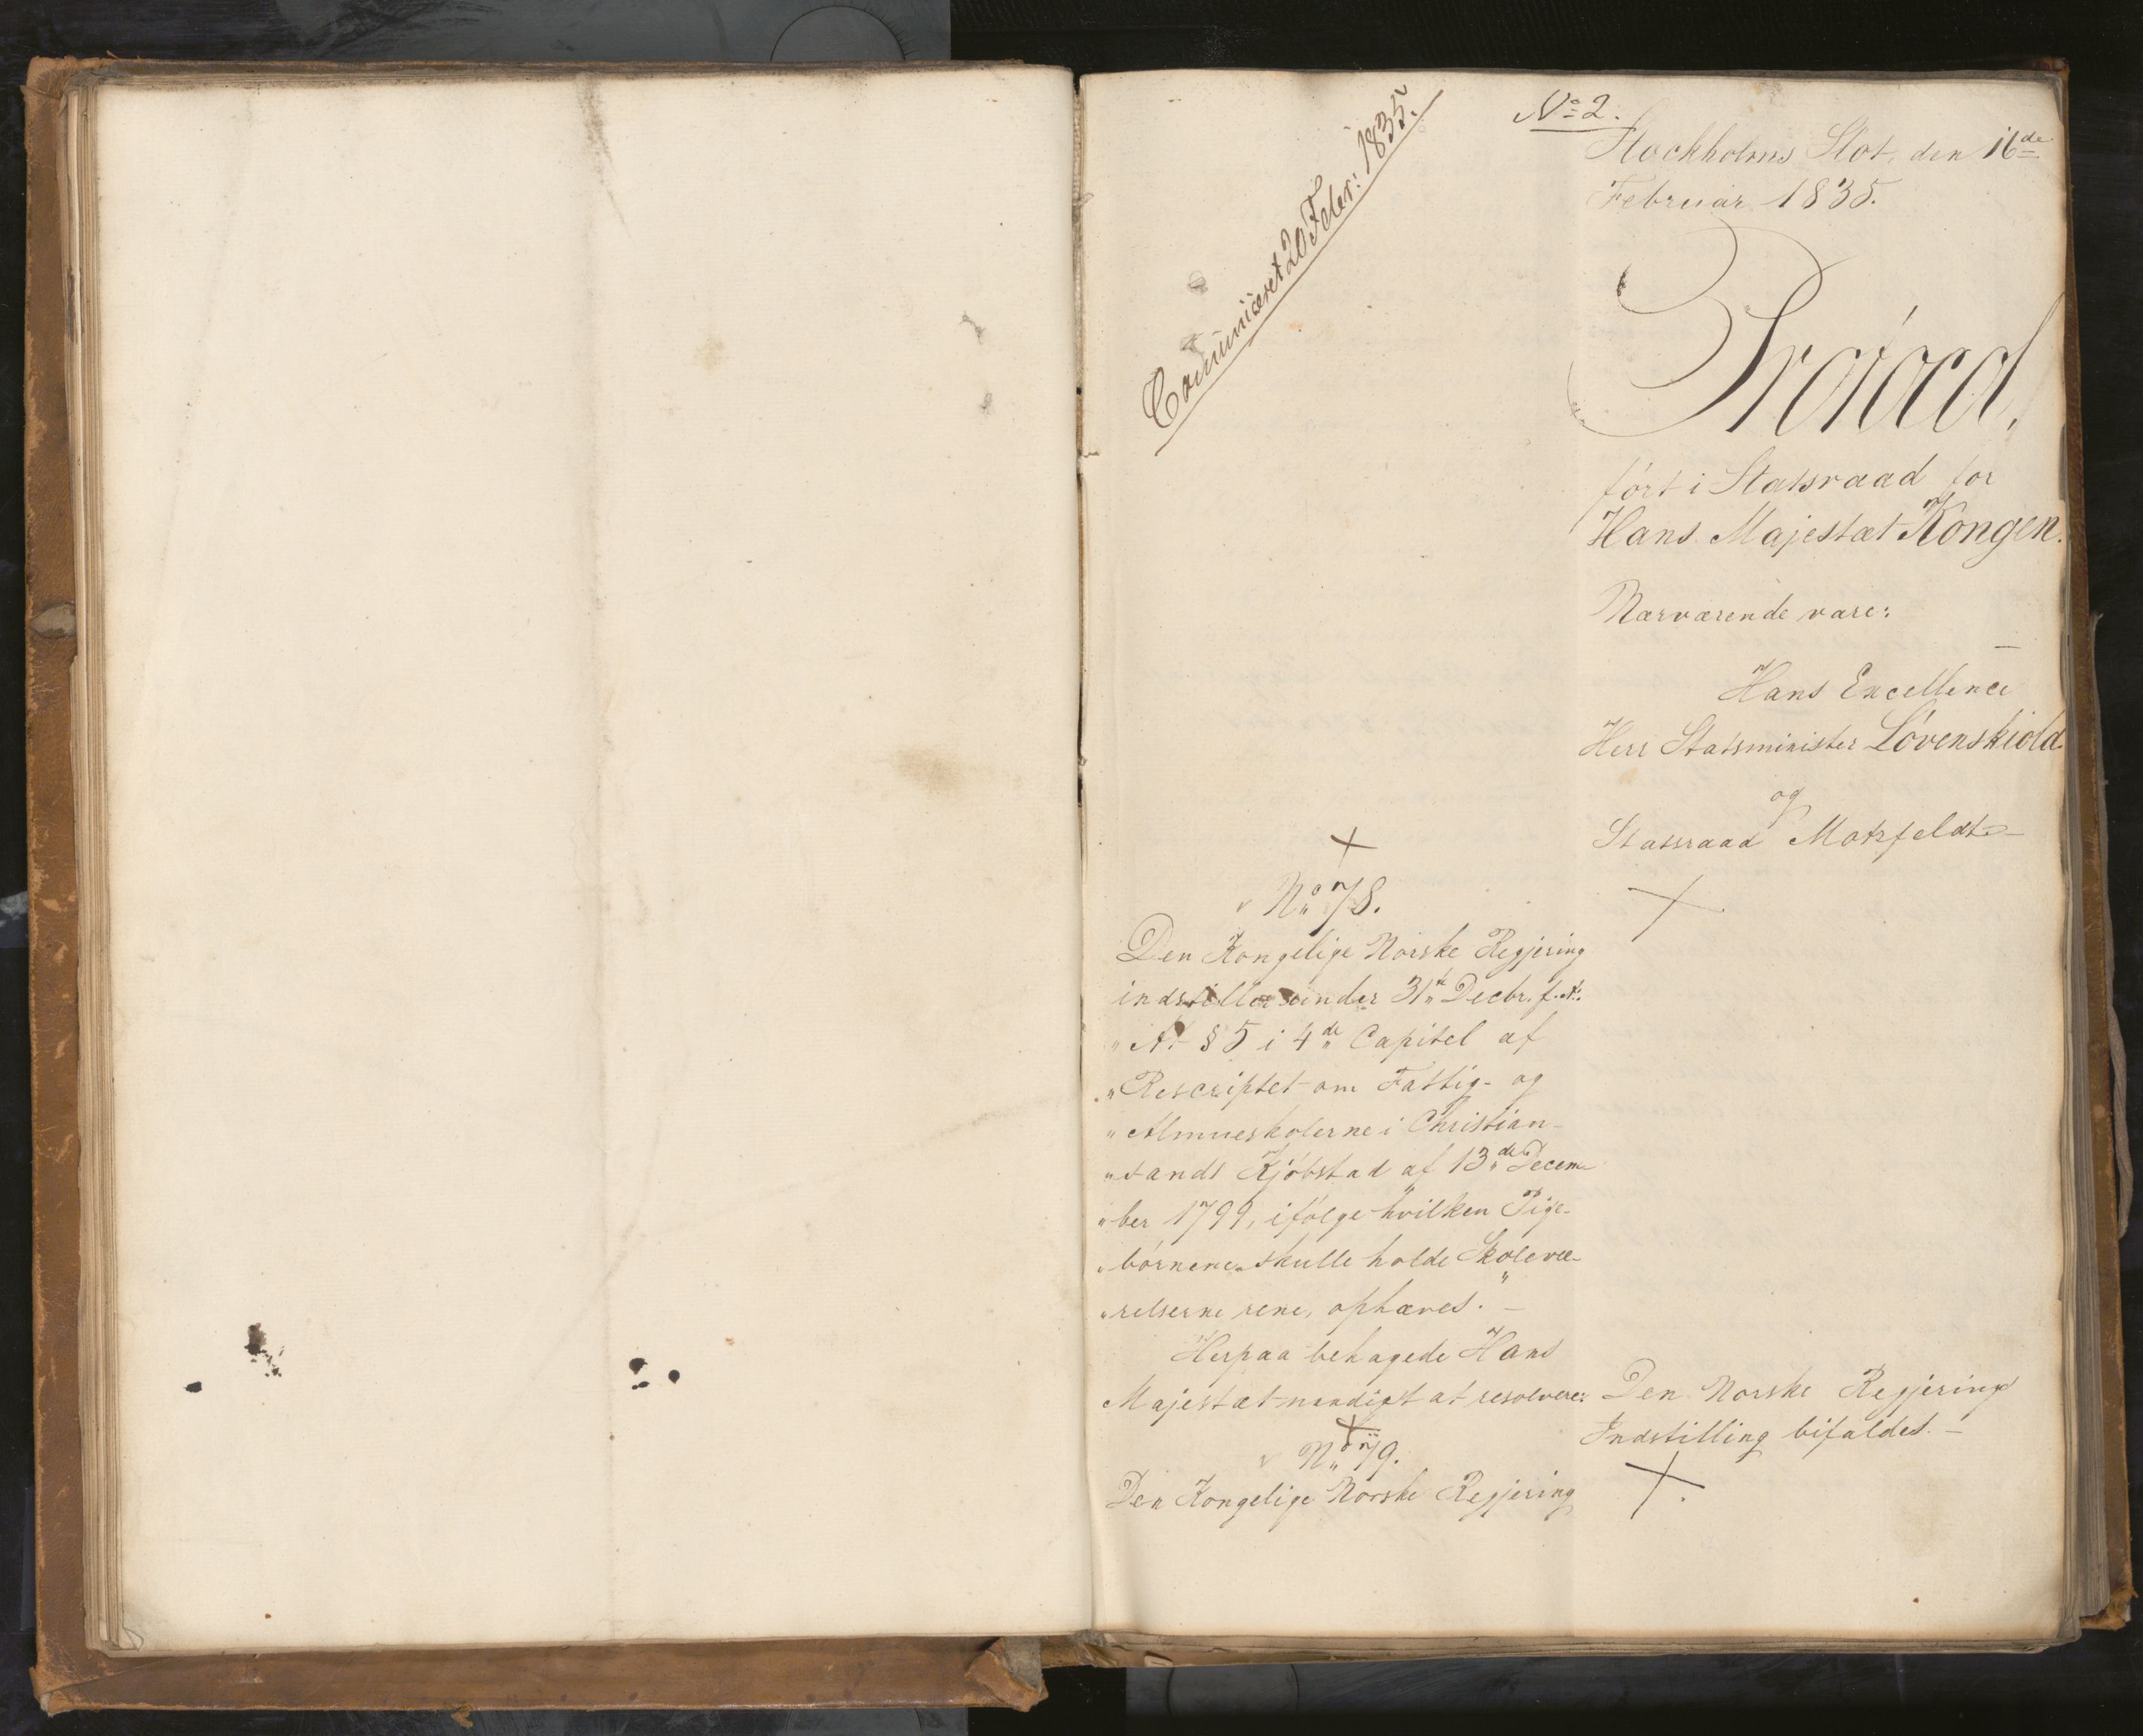 No 2.
Communiceret 20 Febr: 1835.
Stockholms Slot, den 16de
Februar 1835.
Protocol,
fört i Statsraad for
Hans Majestæt Kongen.
Nærværende vare:
Hans Excellence
Herr Statsminister Lövenskiold
og
Statsraad Motzfeldt
No 78.
Den Kongelige Norske Regjering
indstiller under 31te Decbr. f. A.:
"At § 5 i 4de Capitel af
"Rescriptet om Fattig- og
"Almueskolerne i Christian-
"sands Kjöbstad af 13de Decem-
"ber 1799, ifölge hvilken Pige-
"börnene skulle holde Skolevæ-
"relserne rene, ophæves. —
Herpaa behagede Hans
Majestæt naadigst at resolvere:
Den Norske Regjerings
Indstilling bifaldes. —
No 79.
Den Kongelige Norske Regjering